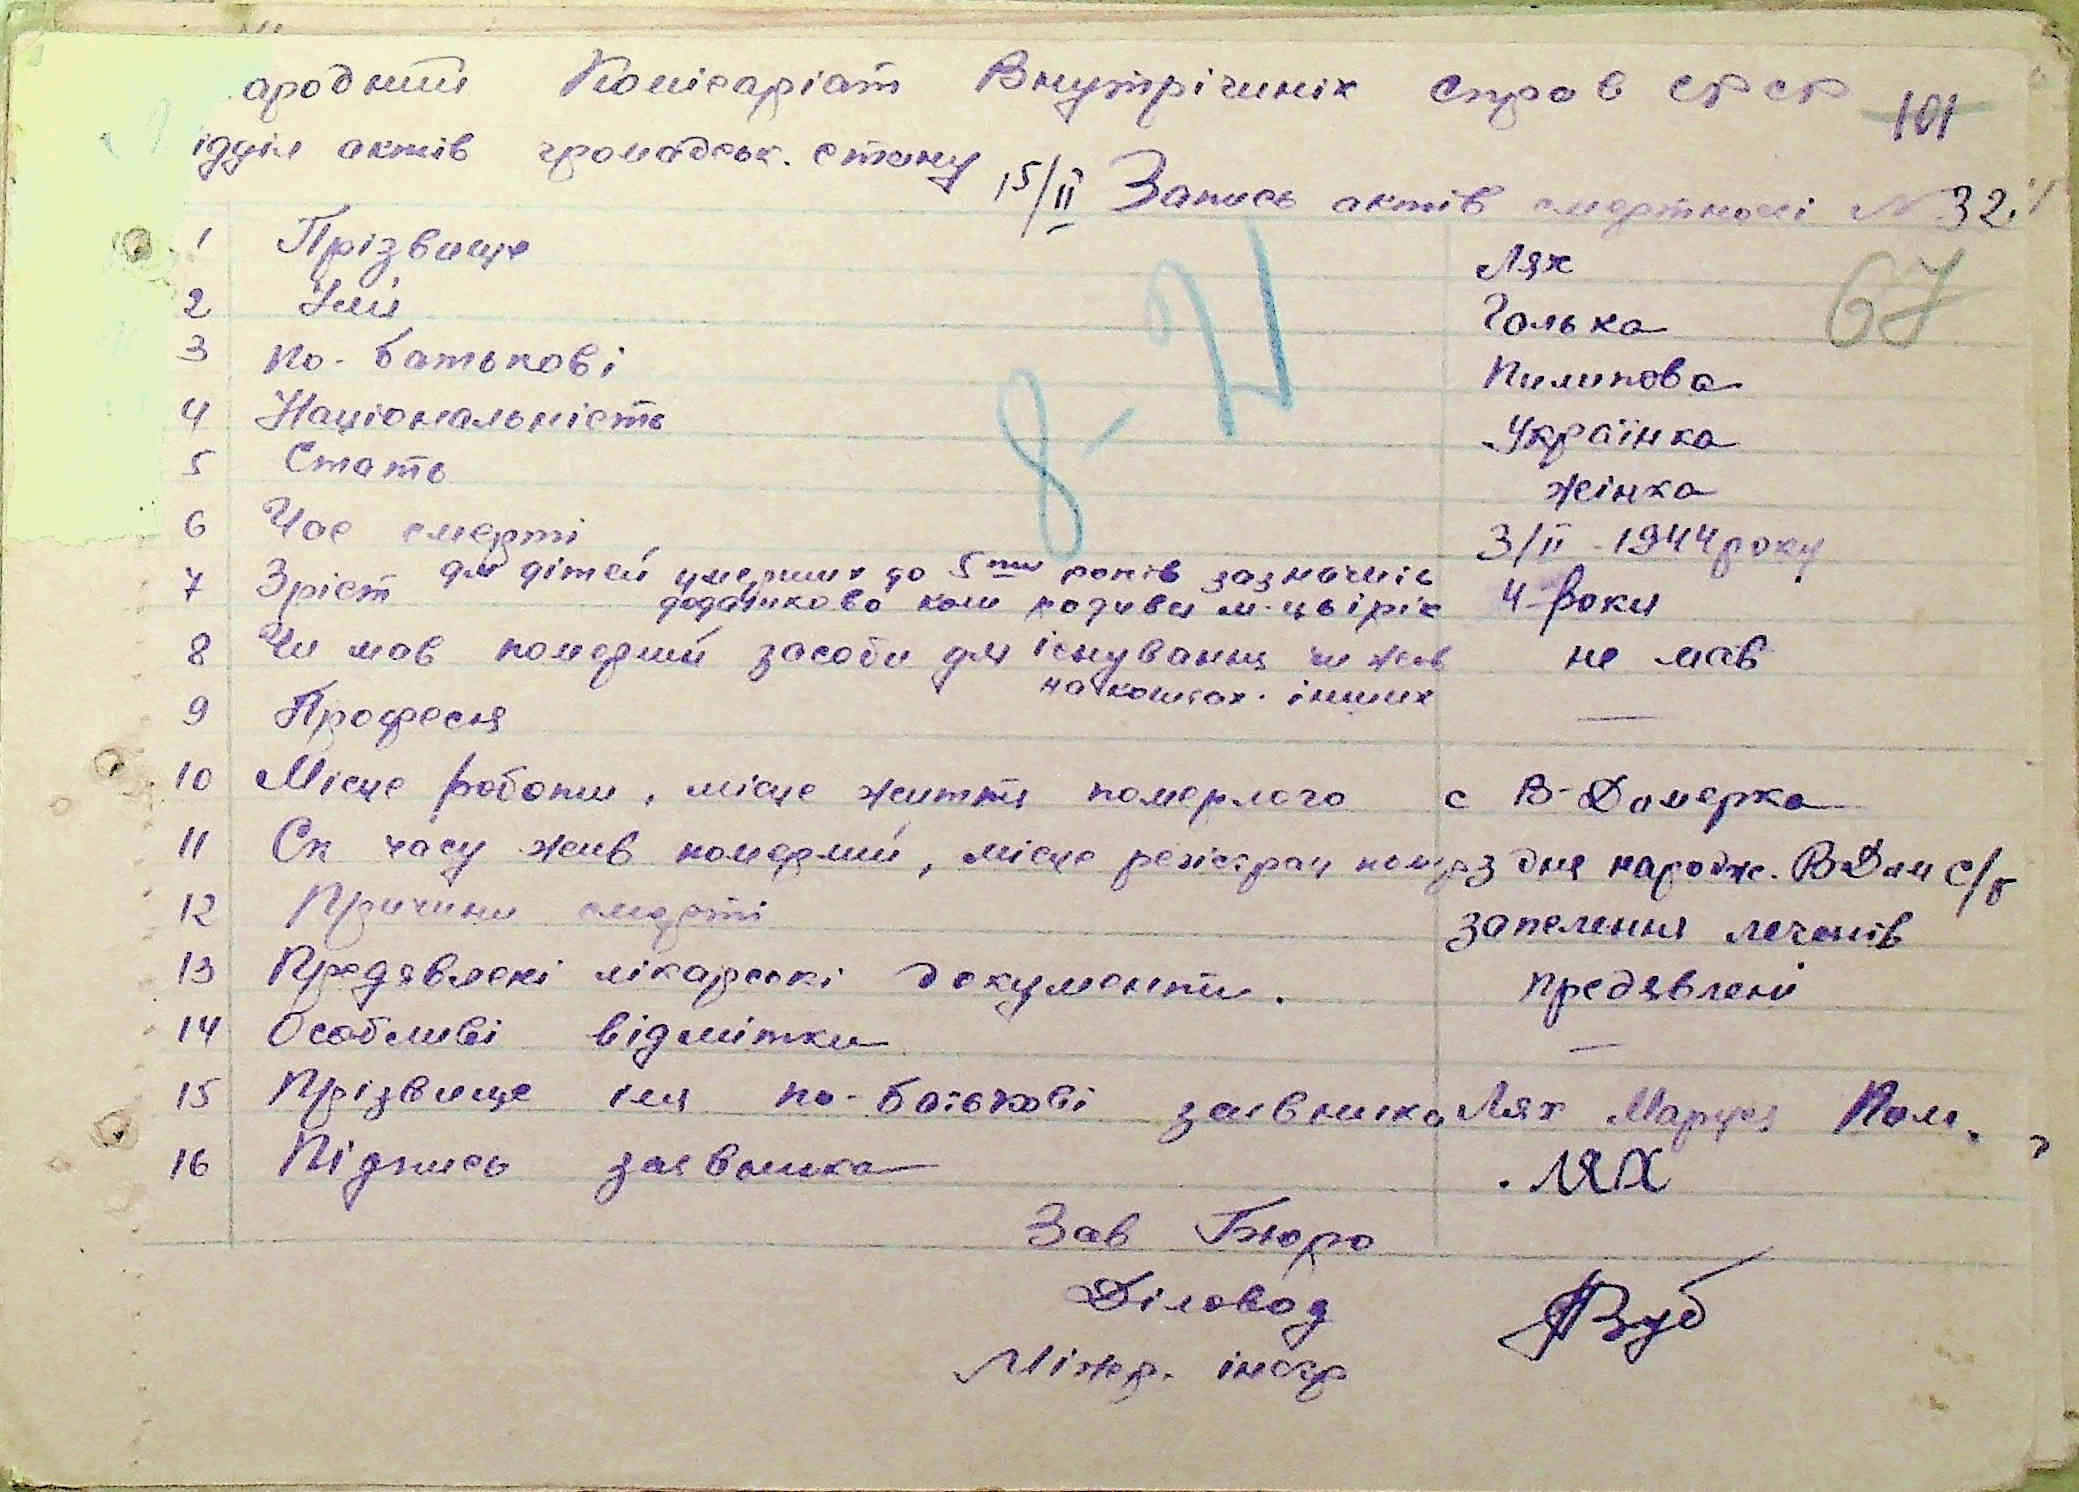 ародний Комісаріат Внутрічніх справ СРСР 101
ідділ актів громадськ. стану
15/II Запись актів смертності № 32
67
8-
1 Прізвище Лях
2 Імя Галька
3 по-батькові Пилипова
4 Національність Українка
5 Стать жінка
6 Час смерті 3/II-1944 року
7 Зріст для дітей умерших до 5ти років зазначить 4 роки
додатково коли родився м-ць і рік
8 Чи мав померший засоби для існування чи жив не мав
на коштах. інших
9 Професія —
10 Місце роботи, місце життя померлого с В-Димерка
11 Ск часу жив померший, місце регістрац помер з дня народж. ВДим с/б
12 Причини смерті запелення легенів
13 Предявлені лікарські документи. предявлені
14 Особливі відмітки —
15 Прізвище імя по-батькові заявника Лях Маруся
16 Підпись заявника ЛЯХ
Зав Бюро
Діловод Зуб
Міжр. інстр